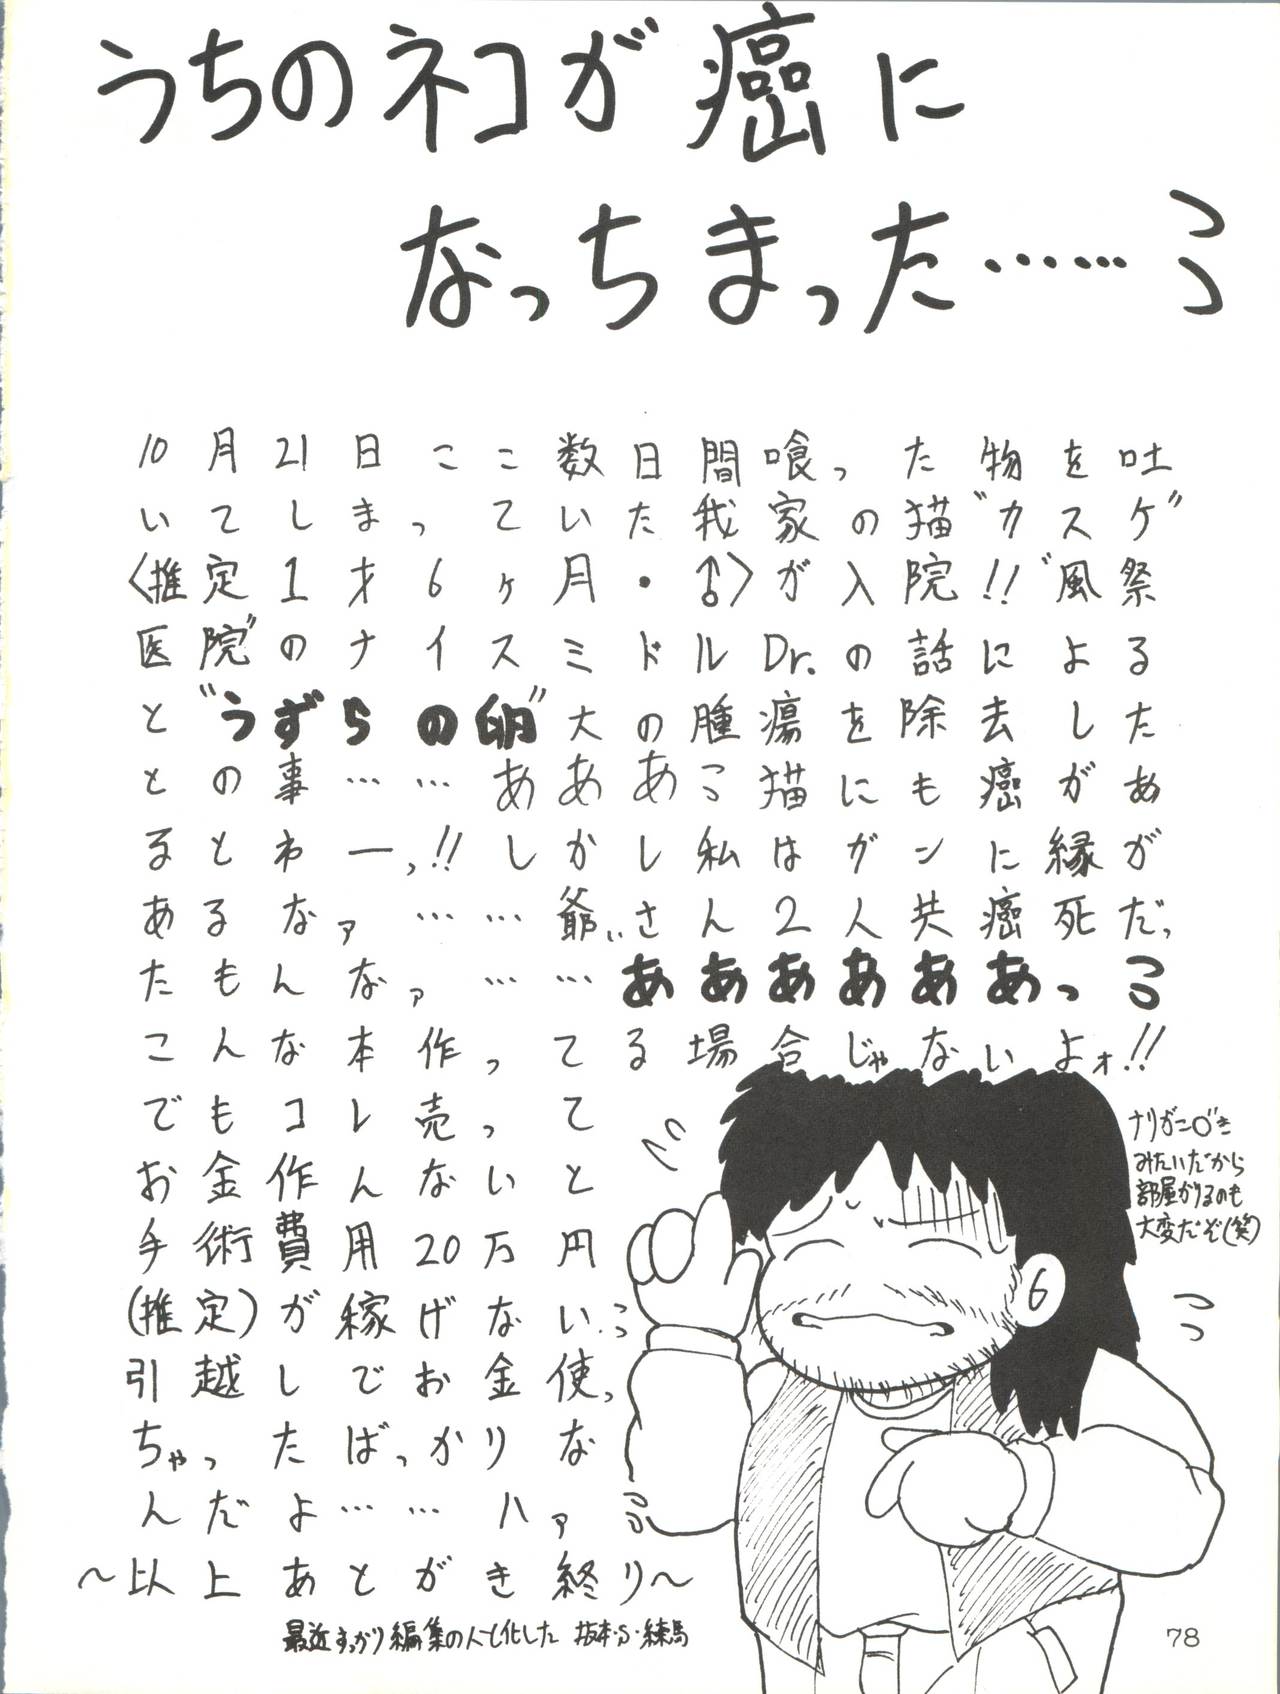 うちのネコが癌に
なっちまった……
10月21日ここ数日間喰った物を吐
いてしまっていた我家の猫"カスケ"
〈推定1才6ヶ月・♂〉が入院!!"風祭
医院"のナイスミドルDr.の話による
と"うずらの卵"大の腫瘍を除去した
との事……あああこ猫にも癌があ
るとわーっ!!しかし私はガンに縁が
あるなァ……爺ぃさん2人共癌死だっ
たもんなァ……ああああああっ
こんな本作ってる場合じゃないよォ!!
でもコレ売って
お金作んないと
手術費用20万円
(推定)が稼げない
引越しでお金使っ
ちゃったばっかりな
んだよ……ハァ
〜以上あとがき終り〜
ナリがニ○"き
みたいだから
部屋かりるのも
大変だぞ(笑)
最近すっかり編集の人と化した 坂本・S・練馬
78